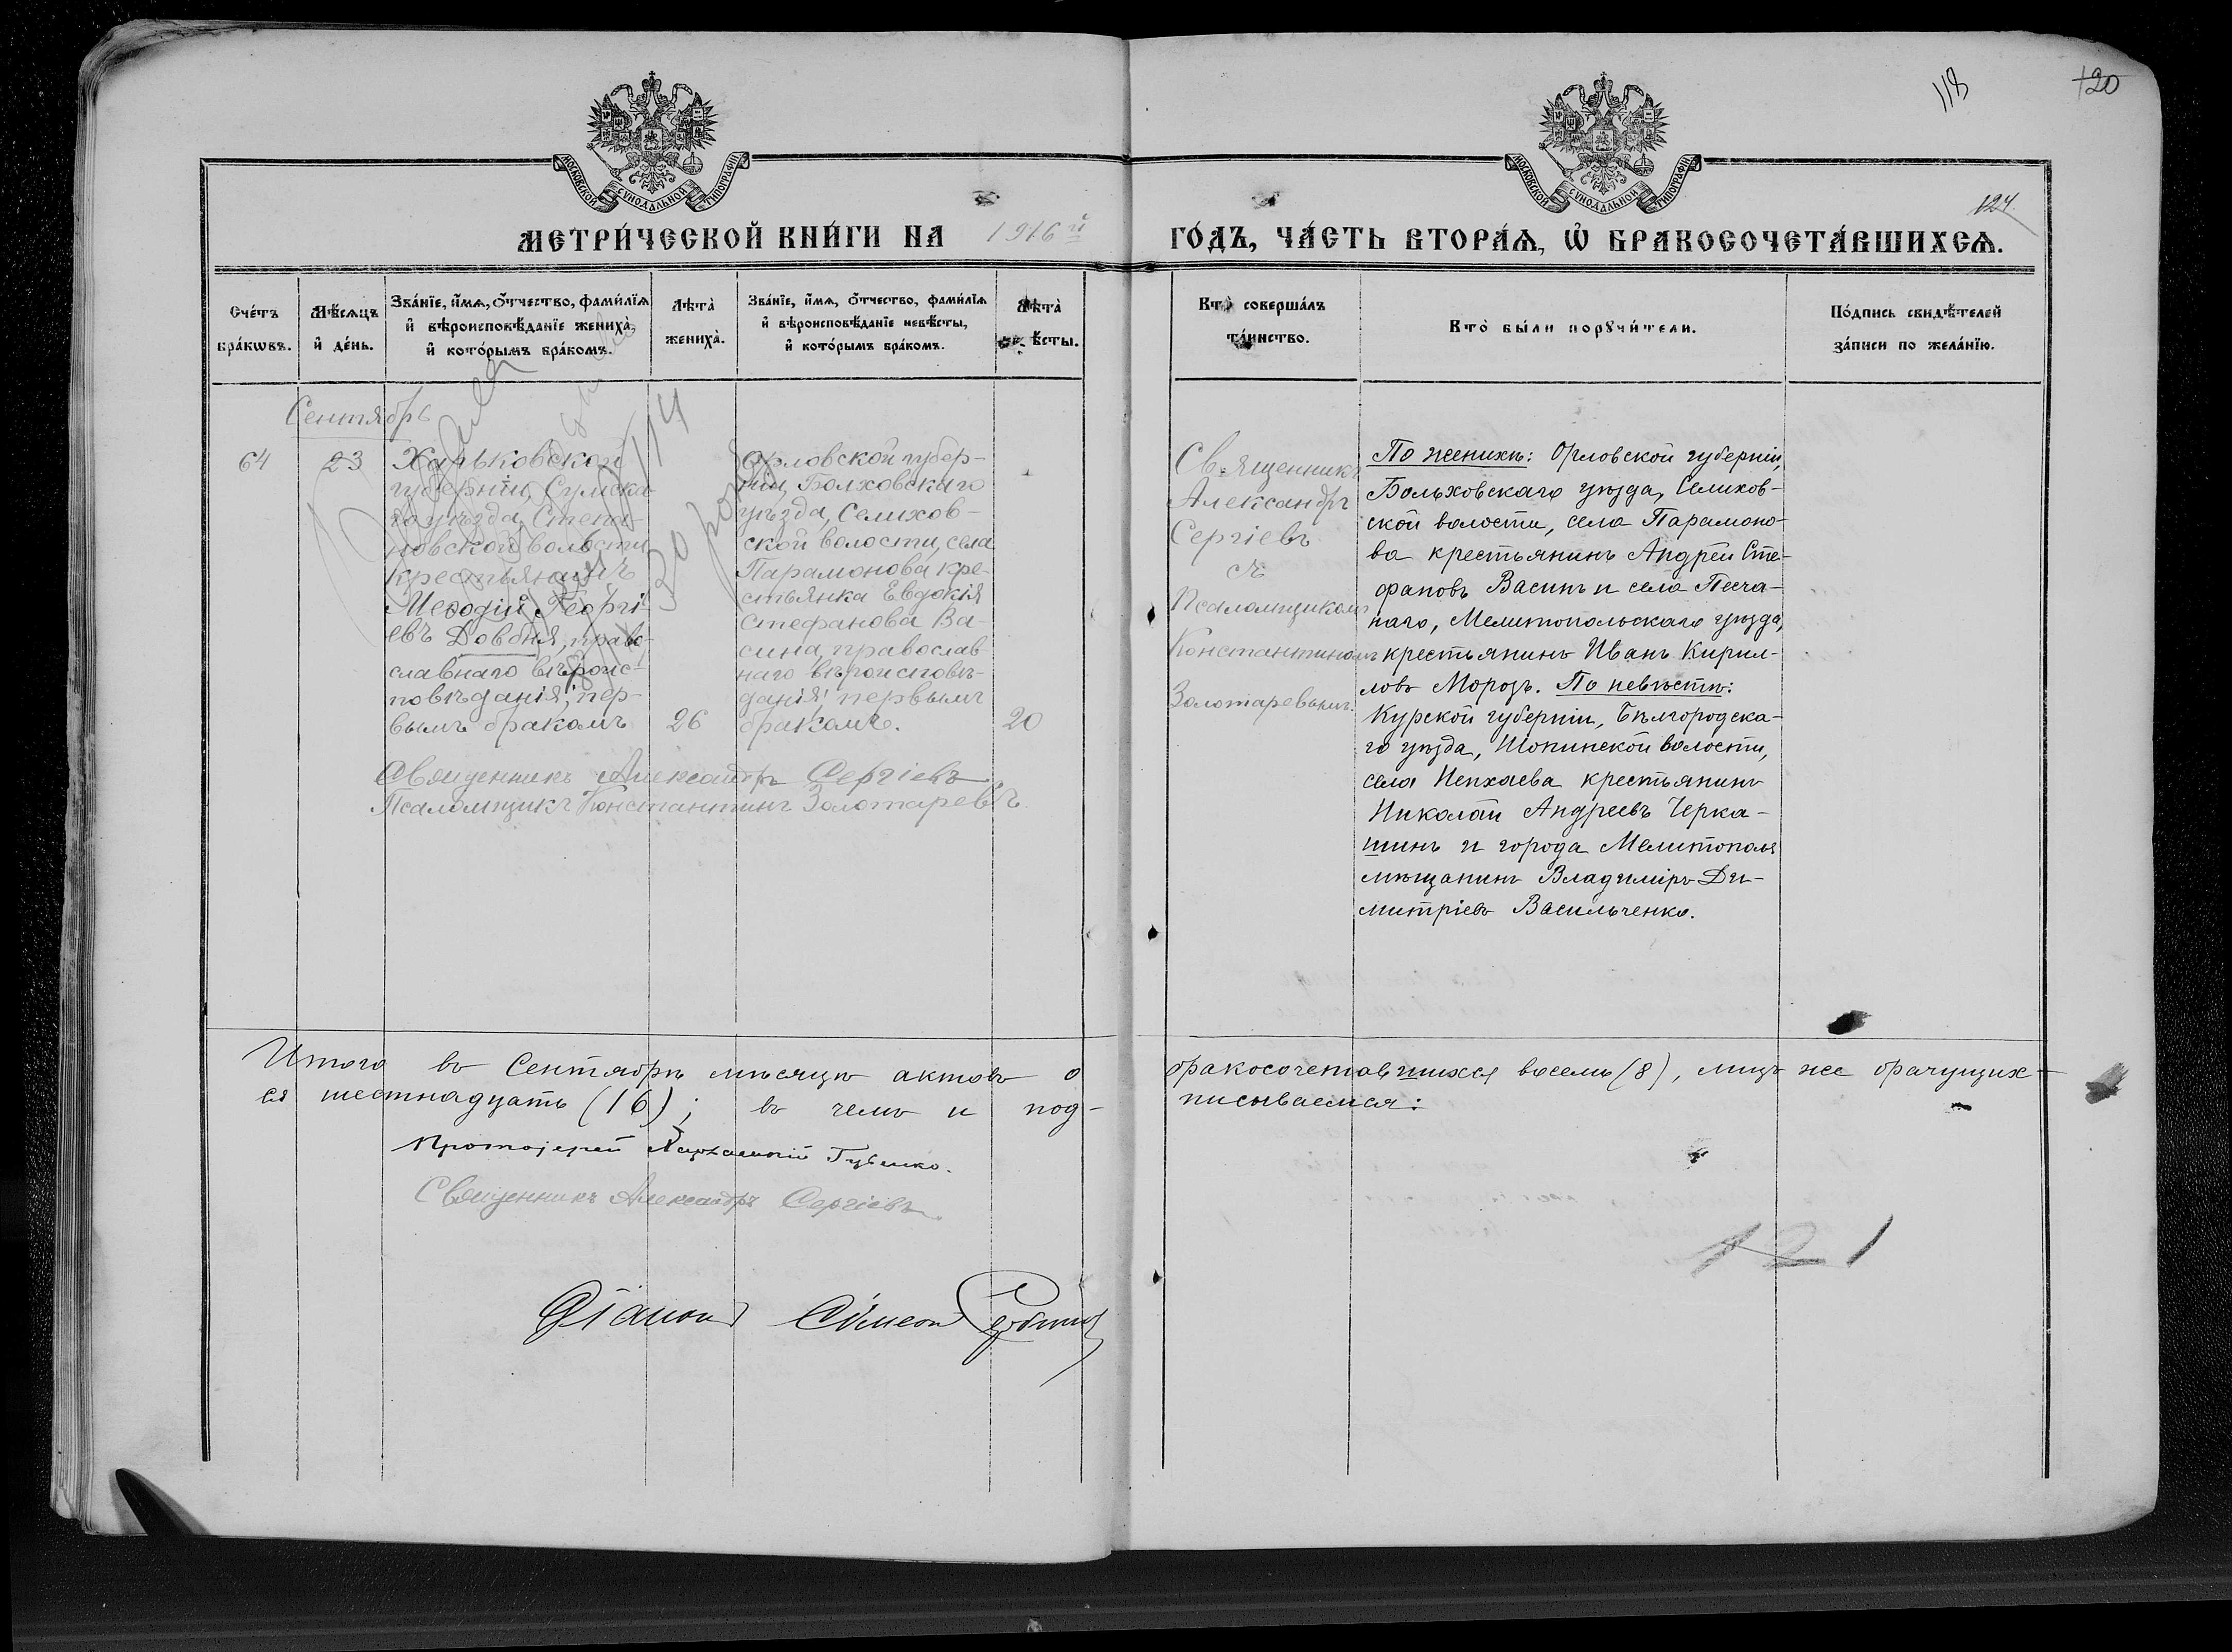 118
120
МОСКОВСКОЙ СУНОДАЛЬНОЙ ТИПОГРАФІИ
МОСКОВСКОЙ СУНОДАЛЬНОЙ ТИПОГРАФІИ
124.
МЕТРИ́ЧЕСКОЙ КНИ́ГИ НА 1916 й
ГО́ДЪ, ЧА́СТЬ ВТОРА́Ѧ, Ѽ БРАКОСОЧЕТА́ВШИХСѦ.
Сче́тъ бра́кѡвъ.
Мѣ́сѧцъ и҆ де́нь.
Зва́нїе, и҆́мѧ, ѻ҆́тчество, фами́лїѧ
и҆ вѣроисповѣ́данїе жениха̀,
и҆ кото́рымъ бра́комъ.
Лѣта̀ жениха̀.
Зва́нїе, и҆́мѧ, ѻ҆́тчество, фами́лїѧ
и҆ вѣроисповѣ́данїе невѣ́сты,
и҆ кото́рымъ бра́комъ.
Лѣта̀ невѣ́сты.
Кто̀ соверша́лъ та́инство.
Кто̀ бы́ли порꙋчи́тели.
По́дпись свидѣ́телей
за́писи по жела́нїю.
Сентябрь
64
23
Харьковской
губерніи, Сумска-
го уѣзда, Степа-
новской волости
крестьянинъ
Меѳодій Георгі-
евъ Довбня, право-
славнаго вѣроис-
повѣданія, пер-
вымъ бракомъ
26
Орловской губер-
ніи, Болховскаго
уѣзда, Селихов-
ской волости, села
Парамонова кре-
стьянка Евдокія
Стефанова Ва-
сина, православ-
наго вѣроисповѣ-
данія, первымъ
бракомъ.
20
Священникъ Александръ Сергіевъ
Псаломщикъ Константинъ Золотаревъ.
Священникъ
Александръ
Сергіевъ
съ
Псаломщикомъ
Константиномъ
Золотаревымъ.
По женихѣ: Орловской губерніи,
Больховскаго уѣзда, Селихов-
ской волости, села Парамоно-
ва крестьянинъ Андрей Сте-
фановъ Васинъ и села Песча-
наго, Мелитопольскаго уѣзда,
крестьянинъ Иванъ Кирил-
ловъ Морозъ. По невѣстѣ:
Курской губерніи, Бѣлгородска-
го уѣзда, Шопинской волости,
села Непхаева крестьянинъ
Николай Андреевъ Черка-
шинъ и города Мелитополя
мѣщанинъ Владиміръ Ди-
митріевъ Васильченко.
Итого въ Сентябрѣ мѣсяцѣ актовъ о бракосочетавшихся восемь (8), лицъ же брачущих-
ся шестнадцать (16); въ чемъ и подписываемся:
Протоіерей Губенко.
Священникъ Александръ Сергіевъ
Діаконъ Сімеон
121